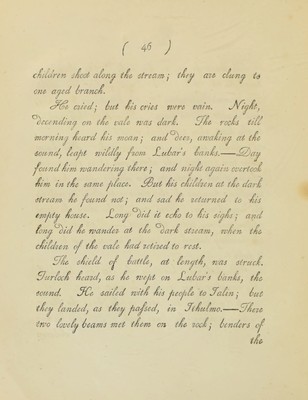 ( 46 )
children shoot along the stream; they are clung to
one aged branch.
He cried; but his cries were vain. Night,
decending on the vale was dark. The rocks till
morning heard his moan; and deer, awaking at the
sound, leapt wildly from Lubar's banks.—Day
found him wandering there; and night again overtook
him in the same place. But his children at the dark
stream he found not; and sad he returned to his
empty house. Long did it echo to his sighs; and
long did he wander at the dark stream, when the
children of the vale had retired to rest.
The shield of battle, at length, was struck.
Turloch heard, as he wept on Lubar's banks, the
sound. He sailed with his people to Ialin; but
they landed, as they passed, in Ithulmo.—There
two lovely beams met them on the rock; benders of
the